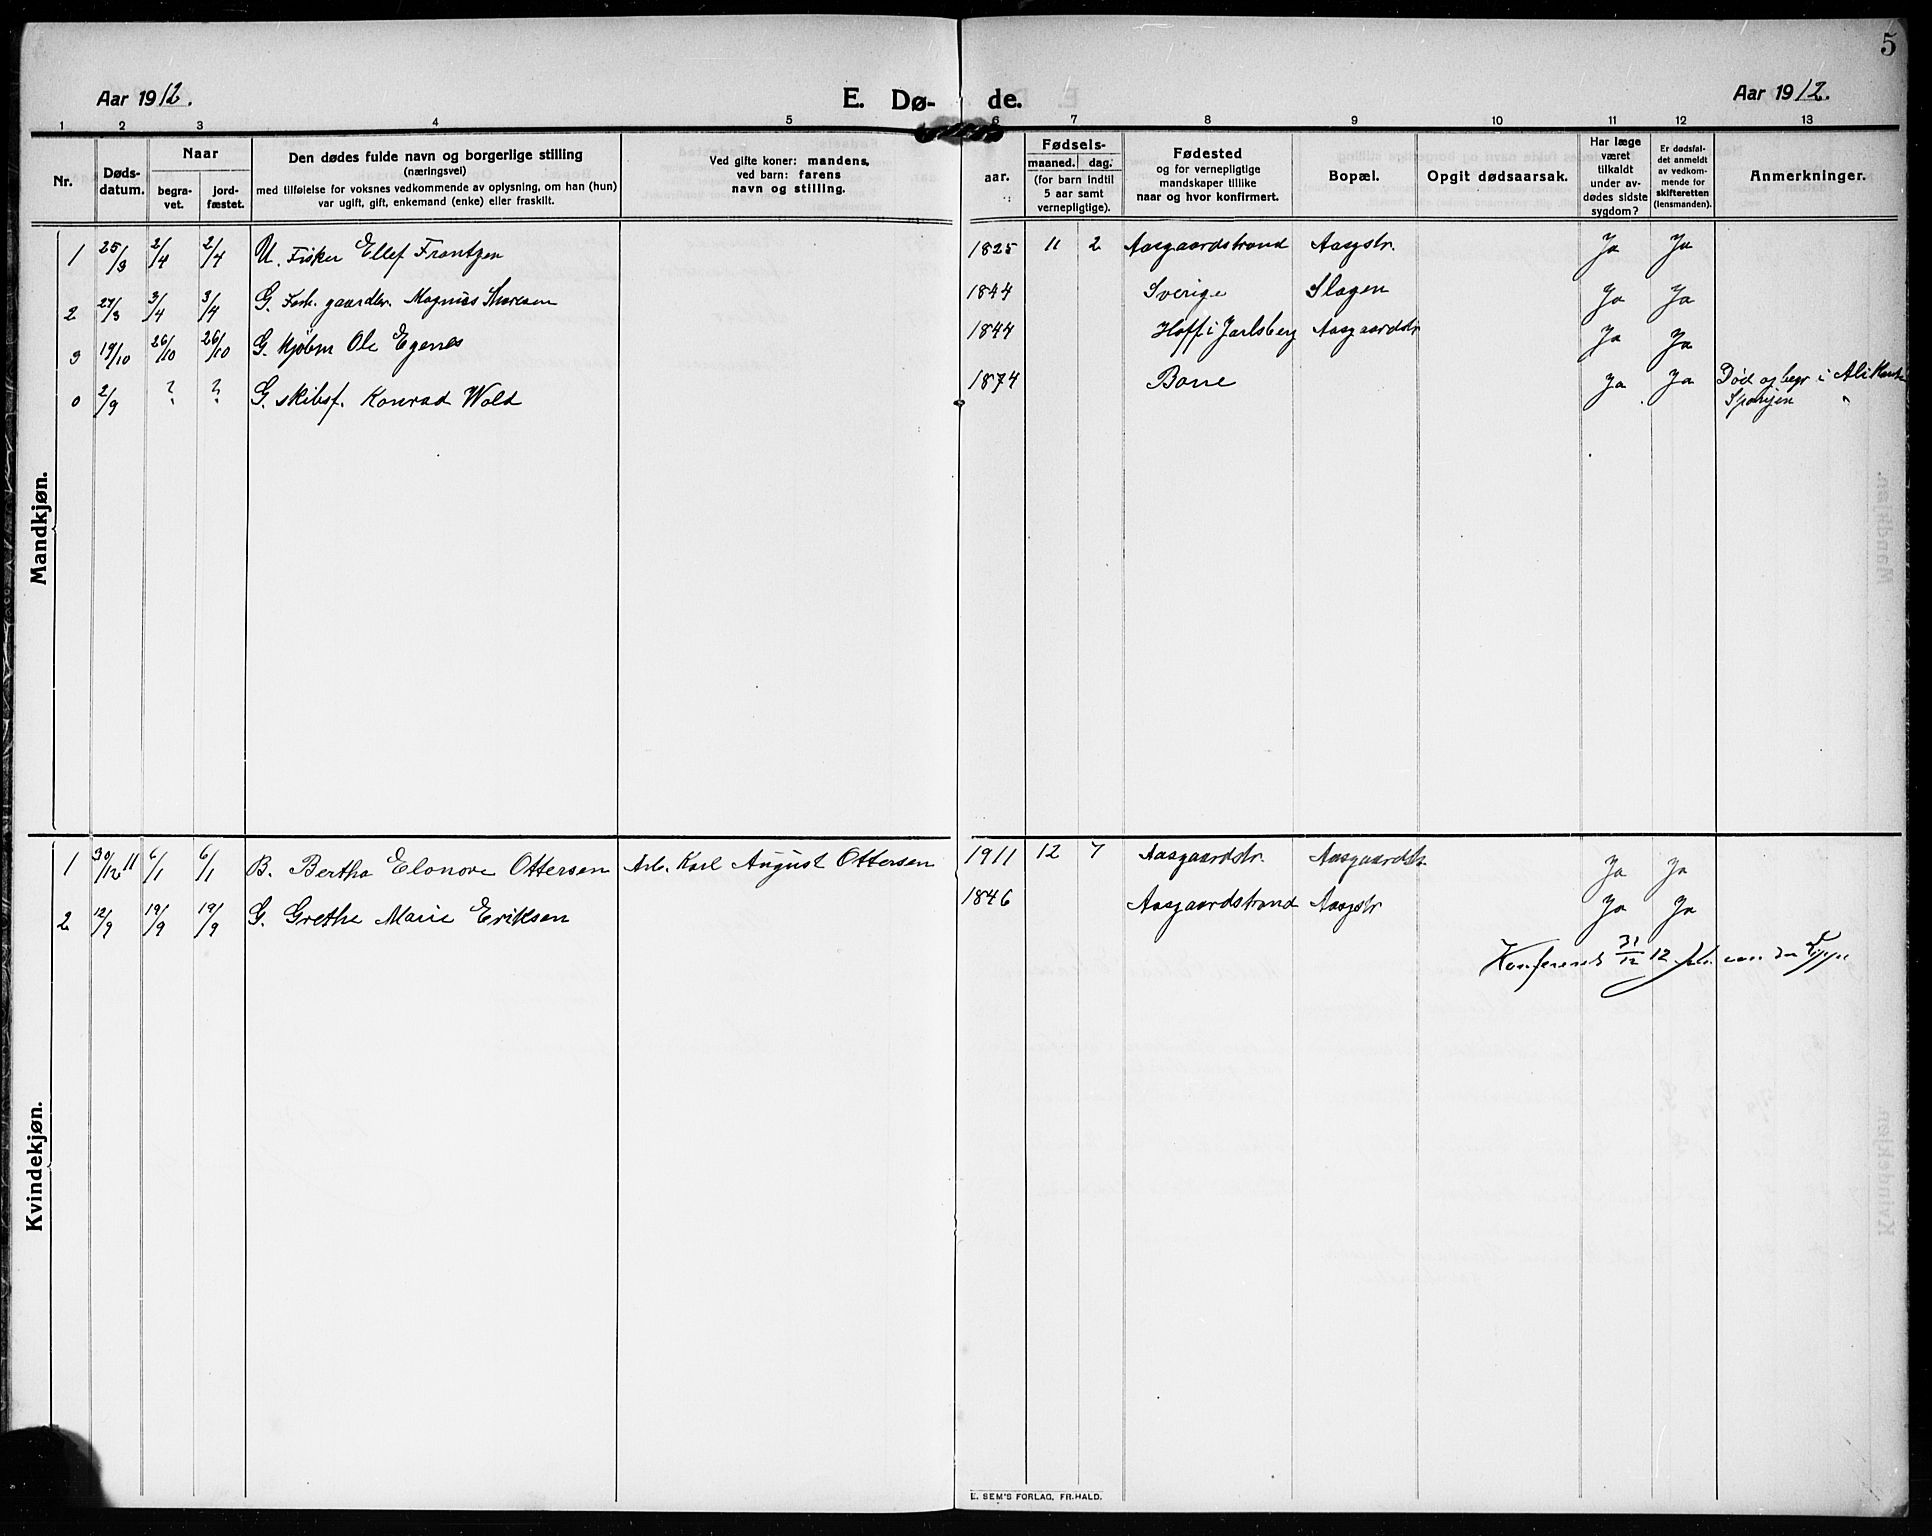 5
Aar 1912. E. Dø- de. Aar 1912.
1 2 3 4 5 6 7 8 9 10 11 12 13
Nr.
Døds-
datum.
Naar
begra-
vet.
jord-
fæstet.
Den dødes fulde navn og borgerlige stilling
(næringsvei)
med tilføielse for voksnes vedkommende av oplysning, om han (hun)
var ugift, gift, enkemand (enke) eller fraskilt.
Ved gifte koner: mandens,
ved barn: farens
navn og stilling.
Fødsels-
aar.
maaned.
dag.
(for barn indtil
5 aar samt
vernepligtige).
Fødested
og for vernepligtige
mandskaper tillike
naar og hvor konfirmert.
Bopæl.
Opgit dødsaarsak.
Har læge
været
tilkaldt
under av-
dødes sidste
sygdom?
Er dødsfal-
det anmeldt
av vedkom-
mende for
skifteretten
(lensmanden).
Anmerkninger.
Mandkjøn.
1 25/3 2/4 2/4 U. Fisker Ellef Frantzen 1825 11 2 Aasgaardstrand Aasgstr. Ja Ja
2 27/3 3/4 3/4 G. Forh. gaardbr. Magnus Thoresen 1844 Sverige Slagen Ja Ja
3 19/10 26/10 26/10 G. Kjøbm Ole Egenes 1844 Hoff i Jarlsberg Aasgaardstr Ja Ja
0 2/9 ? ? G. skibsf. Konrad Wold 1874 Borre Ja Ja Død og begr i Alikante
Spanjen "
Kvindekjøn.
1 30/12 11 6/1 6/1 B. Bertha Elonore Ottersen Arb. Karl August Ottersen 1911 12 7 Aasgaardstr. Aasgaardstr. Ja Ja
2 12/9 19/9 19/9 G. Grethe Marie Eriksen 1846 Aasgaardstrand Aasgstr Ja Ja
Konfereret 31/12 12 van der Lippe
E. SEM'S FORLAG, FR.HALD.